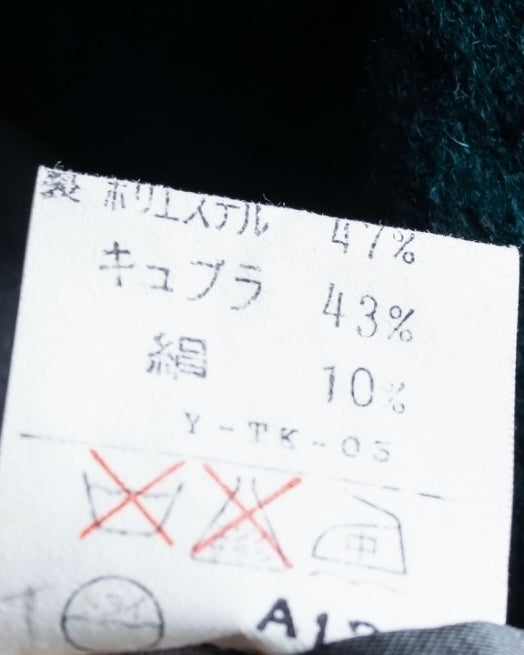 裂 ポリエステル 47%
キュプラ 43%
絹 10%
Y-TK-05
中